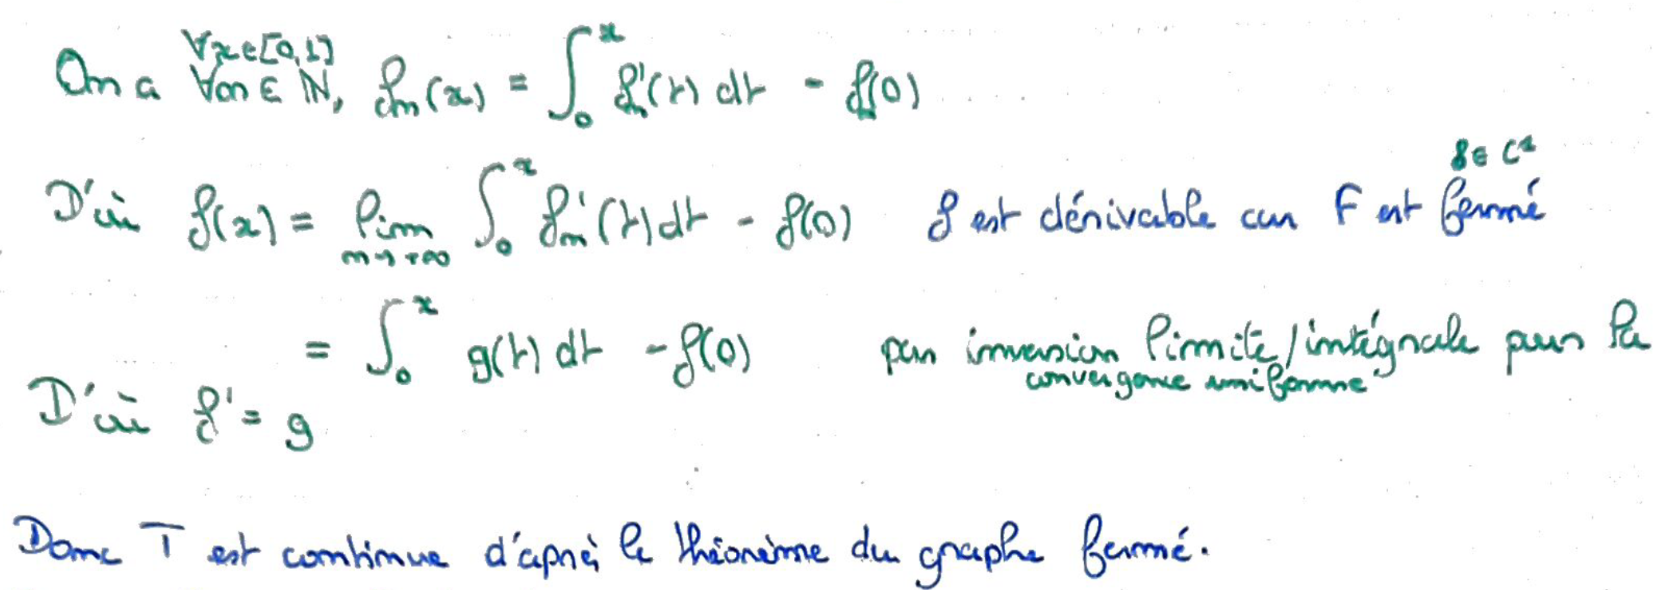 ∀x∈[0,1]
On a ∀n ∈ ℕ, fₙ(x) = ∫₀ˣ fₙ'(t) dt - fₙ(0)
f ∈ C¹
D'où f(x) = lim_{n→+∞} ∫₀ˣ fₙ'(t) dt - f(0) f est dérivable car F est fermé
= ∫₀ˣ g(t) dt - f(0) par inversion limite/intégrale pour la
convergence uniforme
D'où f' = g
Donc T est continue d'après le théorème du graphe fermé.